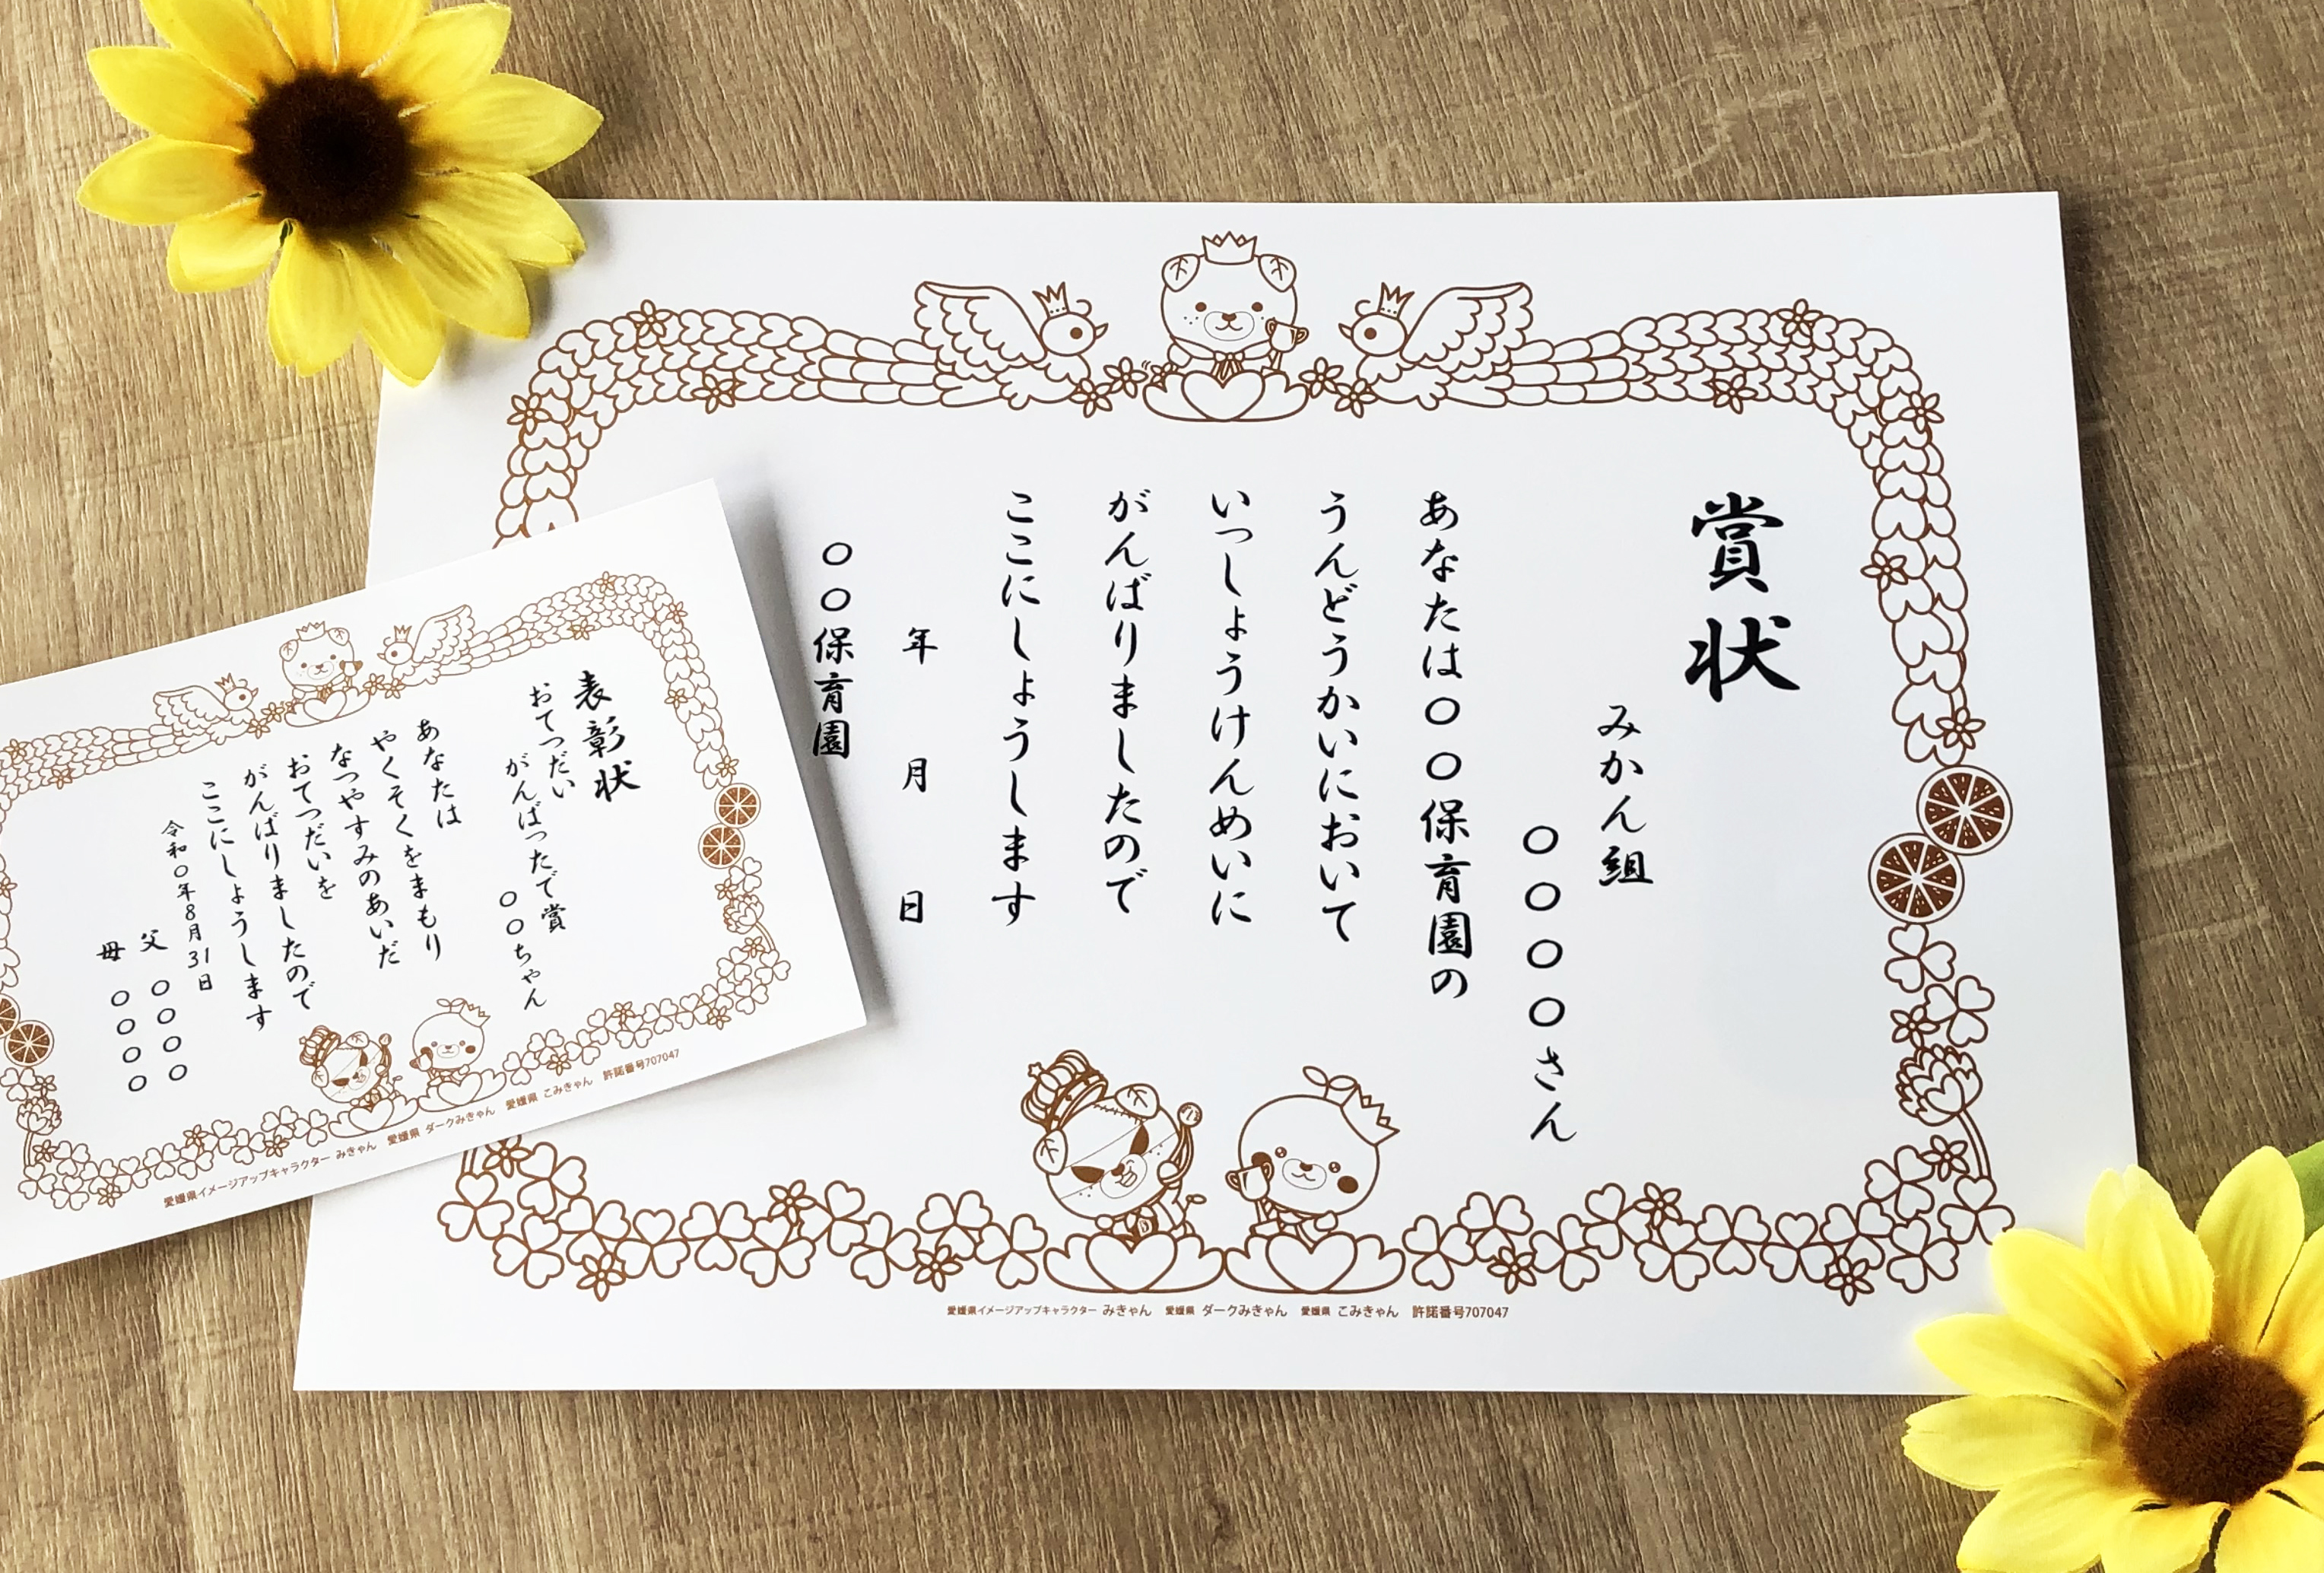 賞状
みかん組
〇〇〇〇さん
あなたは〇〇保育園の
うんどうかいにおいて
いっしょうけんめいに
がんばりましたので
ここにしょうします
年 月 日
〇〇保育園
愛媛県イメージアップキャラクター みきゃん 愛媛県 ダークみきゃん 愛媛県 こみきゃん 許諾番号707047
表彰状
おてつだい
がんばったで賞
〇〇ちゃん
あなたは
やくそくをまもり
なつやすみのあいだ
おてつだいを
がんばりましたので
ここにしょうします
令和〇年8月31日
父 〇〇〇〇
母 〇〇〇〇
愛媛県イメージアップキャラクター みきゃん 愛媛県 ダークみきゃん 愛媛県 こみきゃん 許諾番号707047